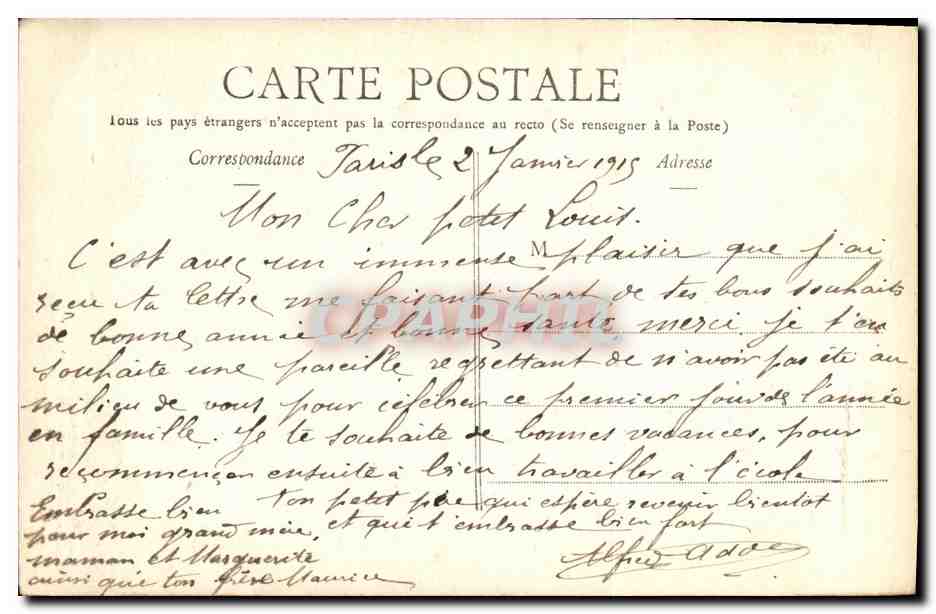 CARTE POSTALE
Tous les pays étrangers n'acceptent pas la correspondance au recto (Se renseigner à la Poste)
Correspondance Paris le 2 Janvier 1915 Adresse
Mon Cher petit Louis.
M
C'est avec un immense plaisir que j'ai
reçu ta lettre me faisant part de tes bons souhaits
de bonne année et bonne santé merci je t'en
souhaite une pareille regrettant de n'avoir pas été au
milieu de vous pour célébrer ce premier jour de l'année
en famille. Je te souhaite de bonnes vacances, pour
recommençer ensuite à bien travailler à l'école
ton petit père qui espère revenir bientot
et qui t'embrasse bien fort
Embrasse bien
pour moi grand mère,
maman et Marguerite
ainsi que ton frère Maurice
Alfred
CPAPHIL